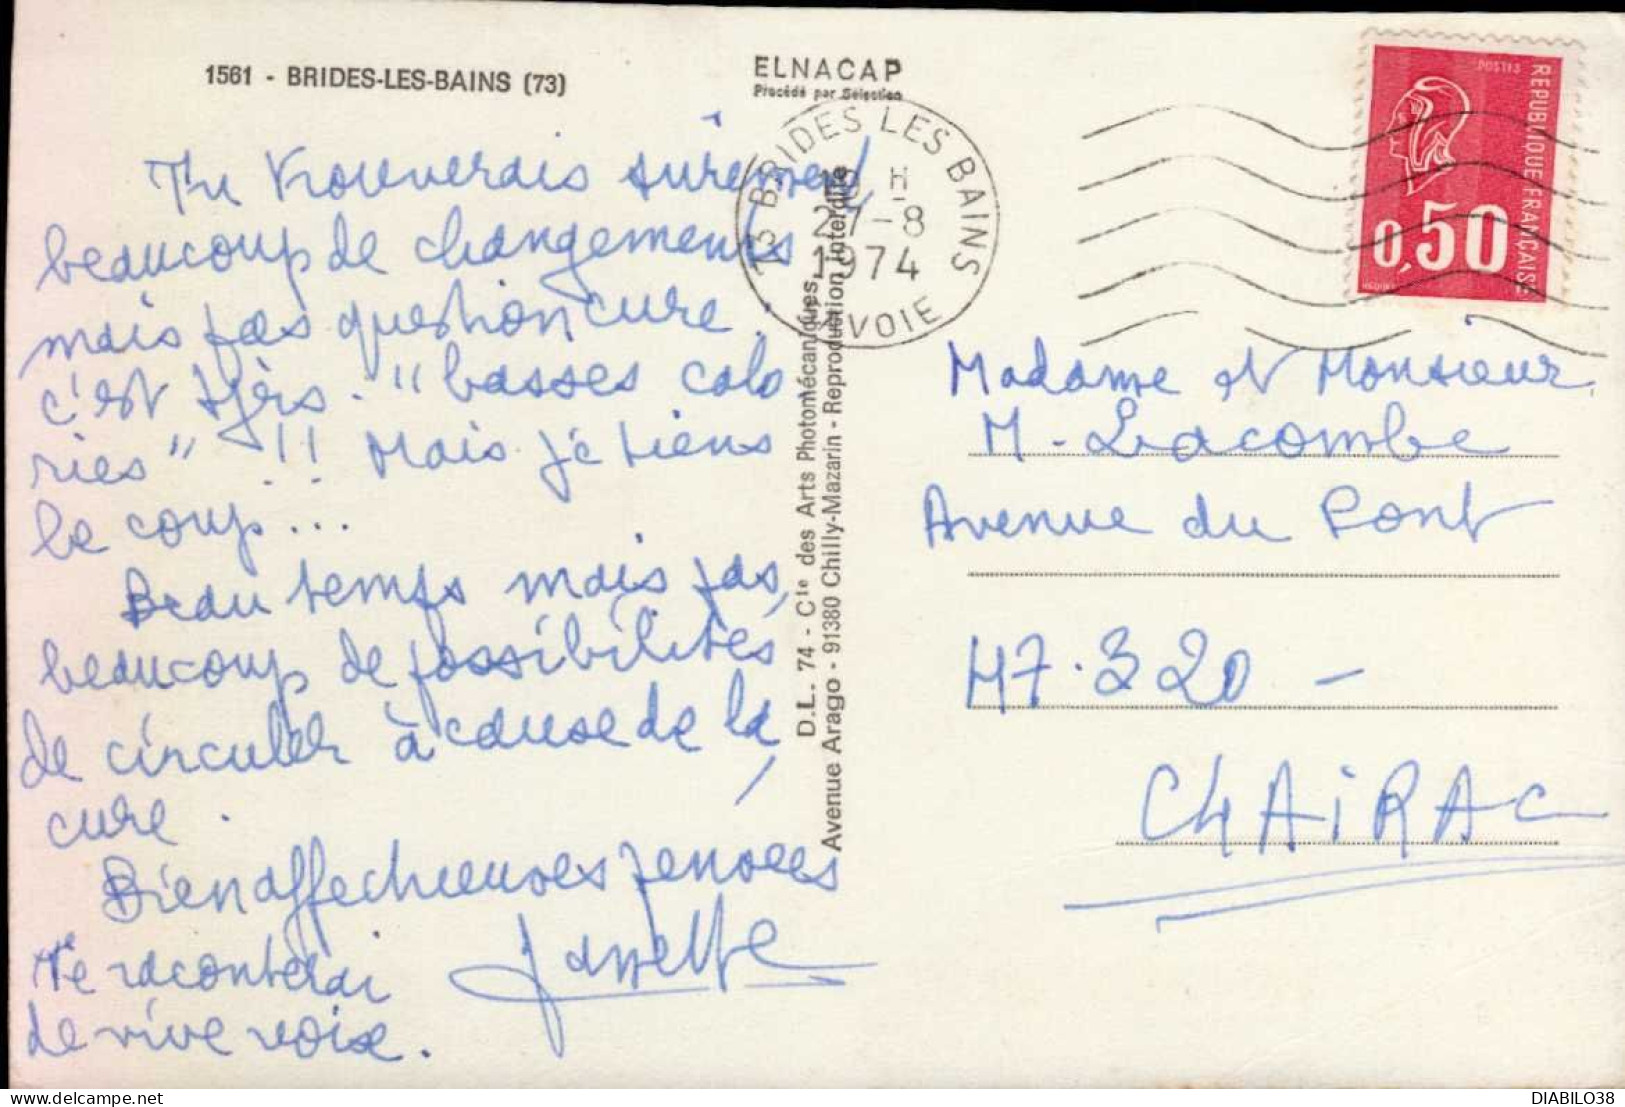 1561 - BRIDES-LES-BAINS (73)
ELNACAP
Procédé par Sélection
Tu trouverais sûrement
beaucoup de changements
mais pas question cure.
c'est tjrs. "basses calo
ries" !! Mais je tiens
le coup...
Beau temps mais pas
beaucoup de possibilités
de circuler à cause de la
cure.
Bien affectueuses pensées
Te raconterai
de vive voix.
73 BRIDES LES BAINS
18 H
27-8
1974
SAVOIE
D.L. 74 - Cie des Arts Photomécaniques,
Avenue Arago - 91380 Chilly-Mazarin - Reproduction interdite
POSTES
REPUBLIQUE FRANÇAISE
0,50
Madame et Monsieur
M. Lacombe
Avenue du Pont
47.320 -
CLAIRAC
DIABILO38